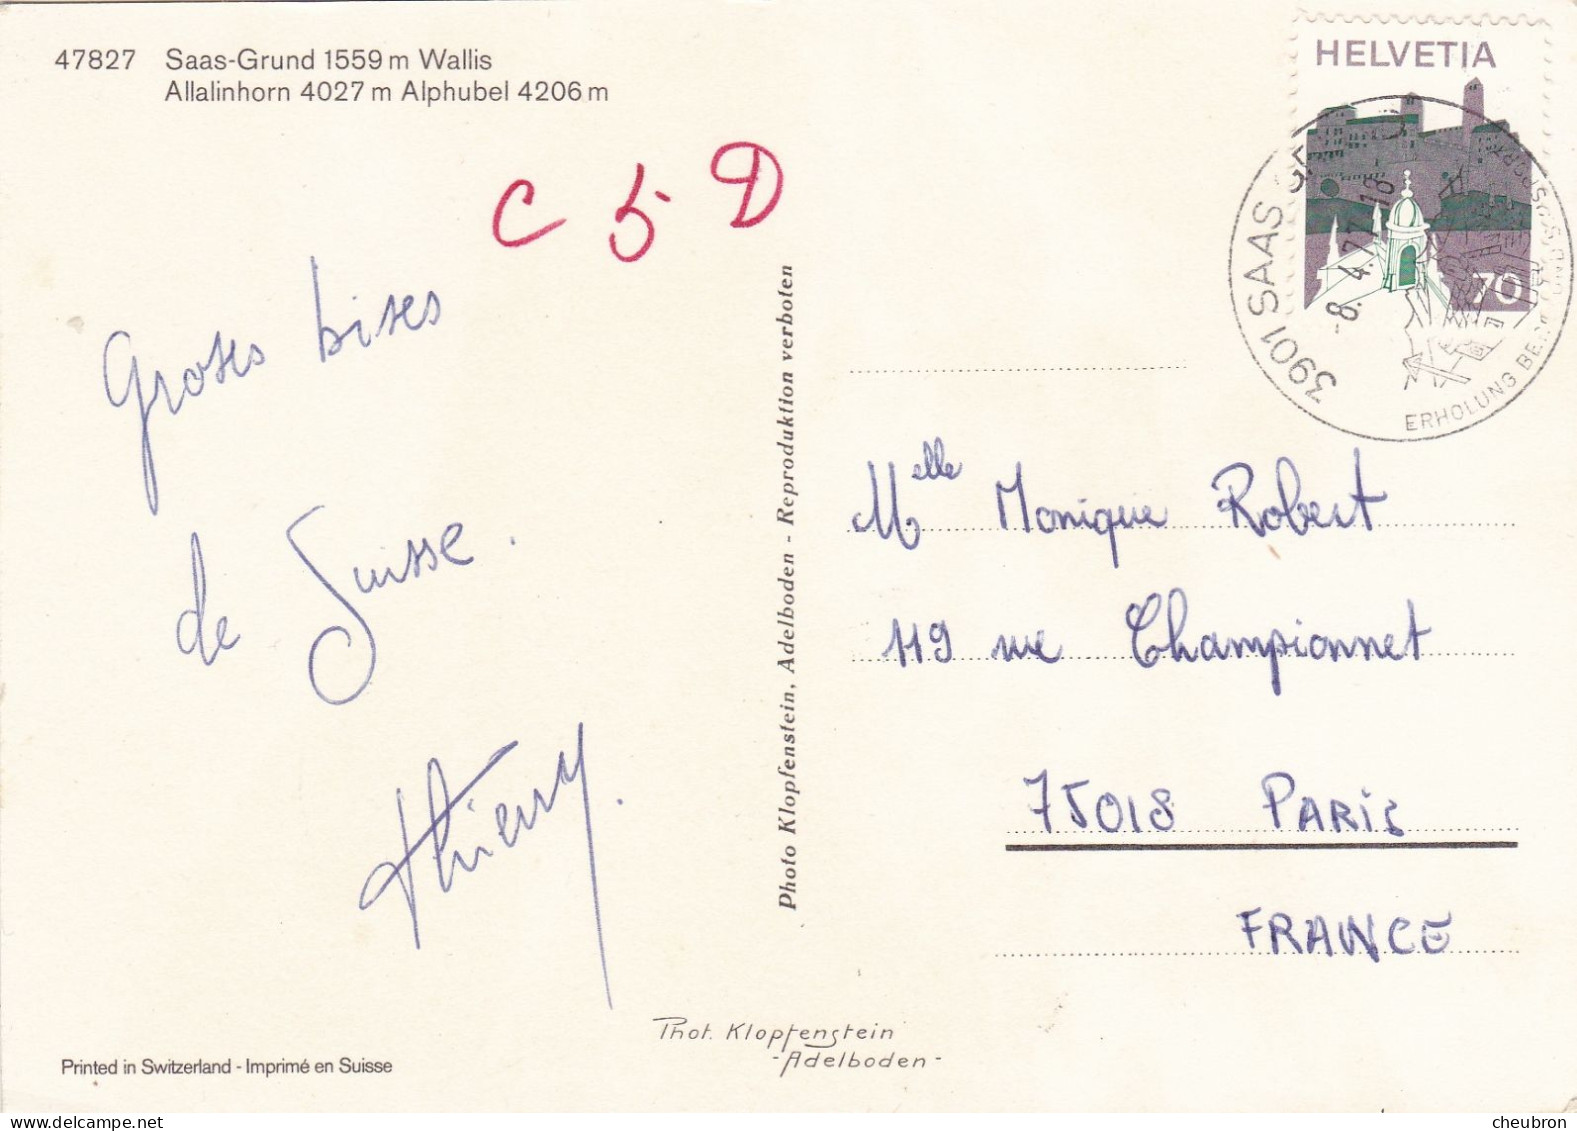 47827 Saas-Grund 1559 m Wallis
Allalinhorn 4027 m Alphubel 4206 m
C 5 D
Groses bises
de Suisse.
Thierry.
Printed in Switzerland - Imprimé en Suisse
Photo Klopfenstein, Adelboden - Reproduktion verboten
Phot. Klopfenstein
- Adelboden -
HELVETIA
70
3901 SAAS
-8. 4. 77-18
ERHOLUNG
Melle Monique Robert
119 rue Championnet
75018 PARIS
FRANCE
cheubron